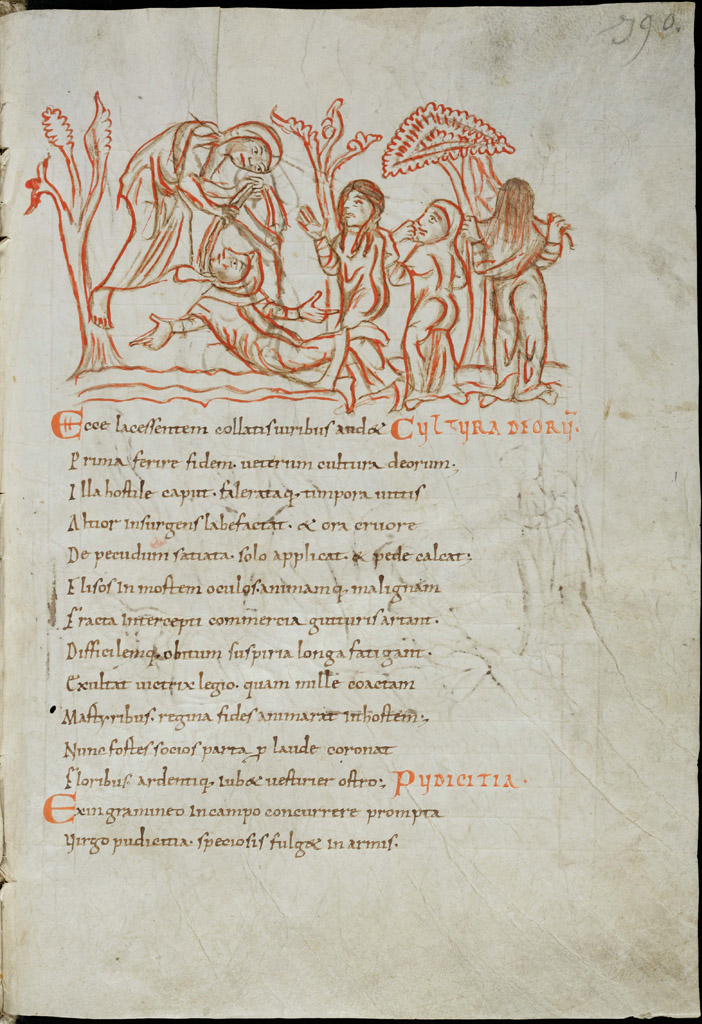 390.
Ecce lacessentem collatis viribus audet CVLTVRA DEORV̄.
Prima ferire fidem. veterum cultura deorum;
Illa hostile caput. falerataq; timpora vittis
Altior insurgens labefactat. & ora cruore
De pecudum satiata. solo applicat. & pede calcat;
Elisos in mortem oculos. animamq; malignam
Fracta intercepti commercia gutturis artant.
Difficilemq; obitum suspiria longa fatigant.
Exultat victrix legio. quam mille coactam
Martyribus. regina fides animarat in hostem;
Nunc fortes socios parta ꝑ laude coronat
Floribus. ardentiq; iub& vestirier ostro; PVDICITIA.
Exin gramineo in campo concurrere prompta
Virgo pudicitia. speciosis fulg& in armis.